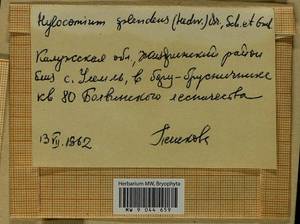 Hylocomium splendens (Hedw.) Br., Sch. et Gmb
Калужская обл, Жиздринский район
близ с. Улемль, в бору-брусничнике
кв 80 Болвинского лесничества
13 VII. 1962 Пешкова
Herbarium MW, Bryophyta
MW 9 044 659